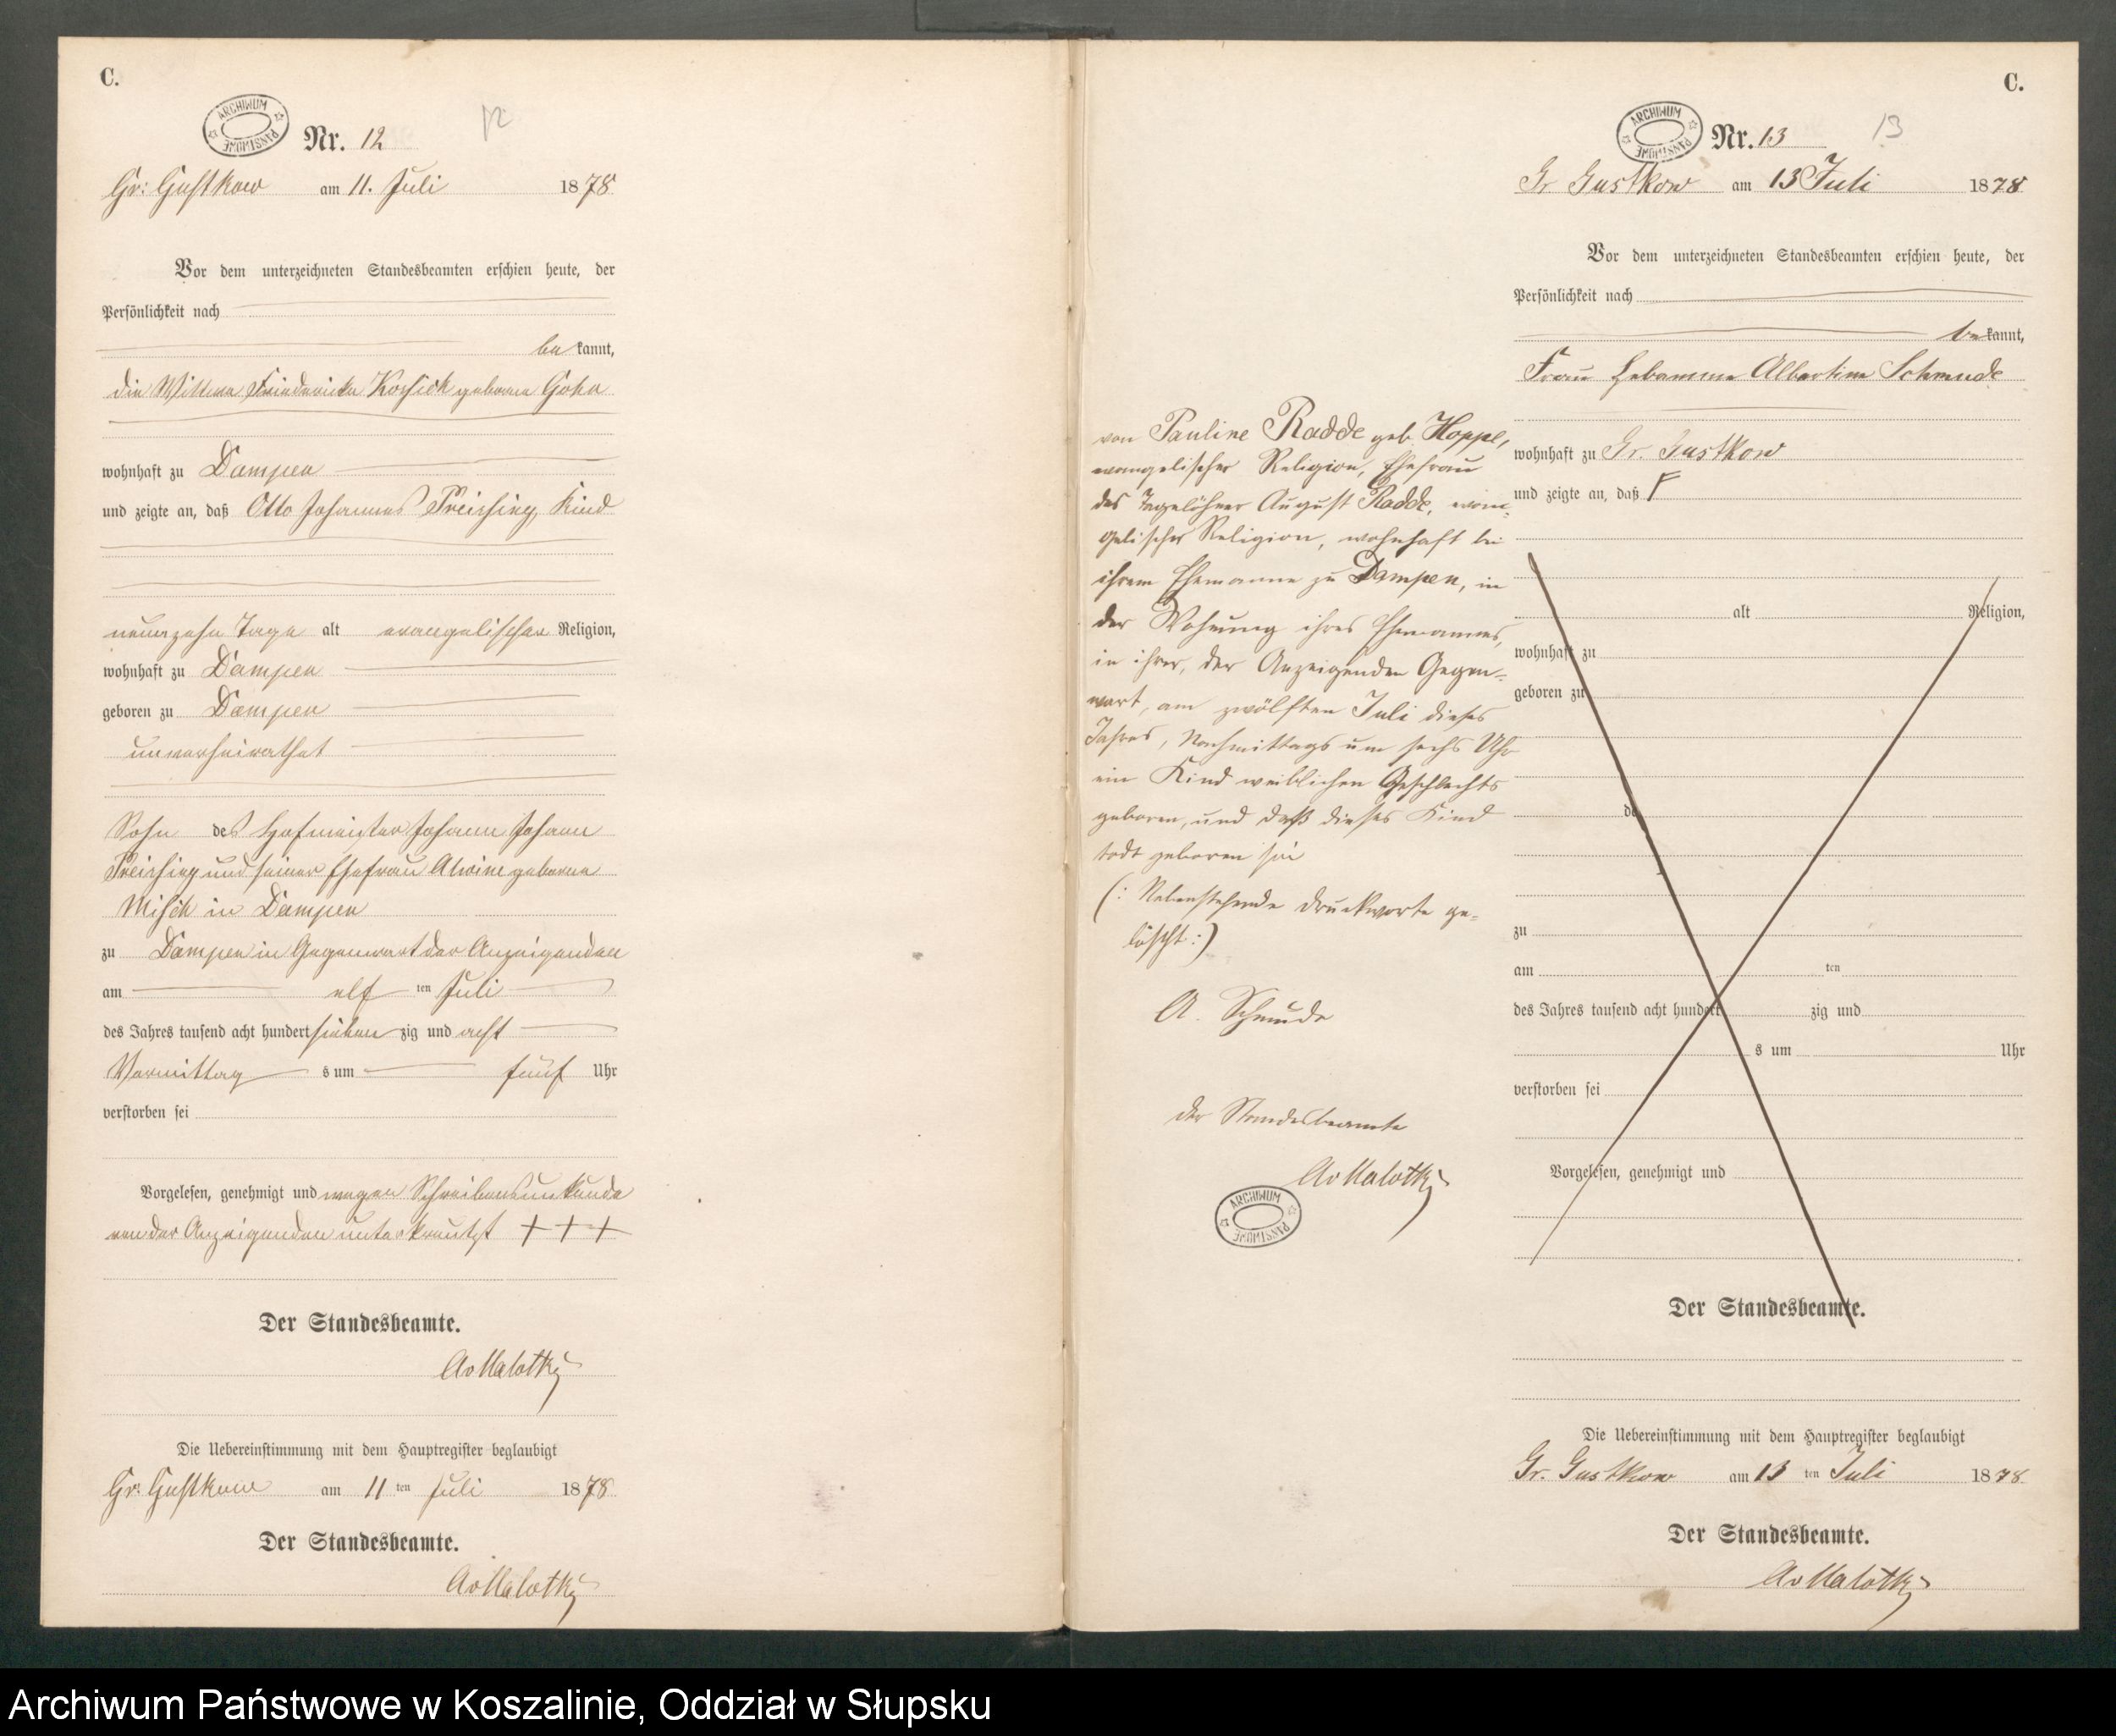 C.
ARCHIWUM PAŃSTWOWE
Nr. 12
12
Gr: Gustkow am 11. Juli 1878
Vor dem unterzeichneten Standesbeamten erschien heute, der
Persönlichkeit nach
be kannt,
die Wittwe Friedericke geborene
wohnhaft zu Dampen
und zeigte an, daß Otto Johannes Kind
neunzehn Tage alt evangelischer Religion,
wohnhaft zu Dampen
geboren zu Dampen
unverheirathet
Sohn des Hofmeister Johann Johann
und seiner Ehefrau Alwine geborene
in Dampen
zu Dampen in Gegenwart der Anzeigenden
am elf ten Juli
des Jahres tausend acht hundert sieben zig und acht
Vormittag s um fünf Uhr
verstorben sei
Vorgelesen, genehmigt und wegen Schreibensunkunde
von der Anzeigenden unterkreutzt + + +
Der Standesbeamte.
AvMalottky
Die Uebereinstimmung mit dem Hauptregister beglaubigt
Gr: Gustkow am 11 ten Juli 1878
Der Standesbeamte.
AvMalottky
C.
ARCHIWUM PAŃSTWOWE
Nr. 13
13
Gr Gustkow am 13 Juli 1878
Vor dem unterzeichneten Standesbeamten erschien heute, der
Persönlichkeit nach
be kannt,
Frau Hebamme Albertine Schmude
wohnhaft zu Gr. Gustkow
und zeigte an, daß
alt Religion,
wohnhaft zu
geboren zu
de
zu
am ten
des Jahres tausend acht hundert zig und
s um Uhr
verstorben sei
Vorgelesen, genehmigt und
Der Standesbeamte.
von Pauline Radde geb. Hoppe,
evangelischer Religion, Ehefrau
des Tagelöhner August Radde, evan-
gelischer Religion, wohnhaft bei
ihrem Ehemanne zu Dampen, in
der Wohnung ihres Ehemannes,
in ihrer, der Anzeigenden Gegen-
wart, am zwölften Juli dieses
Jahres, Nachmittags um sechs Uhr
ein Kind weiblichen Geschlechts
geboren, und daß dieses Kind
todt geboren sei
(: Nebenstehende Druckworte ge-
löscht :)
A. Schmude
der Standesbeamte
AvMalottky
ARCHIWUM PAŃSTWOWE
Die Uebereinstimmung mit dem Hauptregister beglaubigt
Gr. Gustkow am 13 ten Juli 1878
Der Standesbeamte.
AvMalottky
Archiwum Państwowe w Koszalinie, Oddział w Słupsku